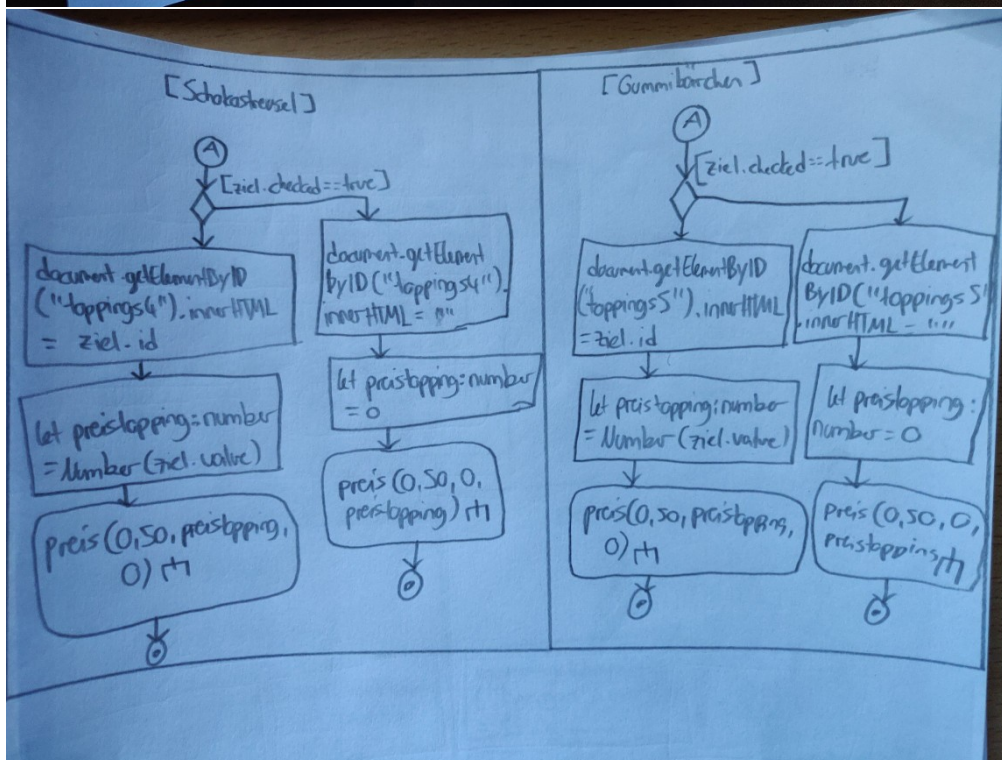 [Schokostreusel]
A
[ziel.checked==true]
document.getElementByID
("toppings4").innerHTML
= ziel.id
let preistopping:number
=Number(ziel.value)
preis(0,50,preistopping,
0)
document.getElement
ByID("toppings4").
innerHTML = ""
let preistopping:number
= 0
preis(0,50,0,
preistopping)
[Gummibärchen]
A
[ziel.checked==true]
document.getElementByID
("toppings5").innerHTML
=ziel.id
let preistopping:number
=Number(ziel.value)
preis(0,50,preistopping,
0)
document.getElement
ByID("toppings5"
.innerHTML = ""
let preistopping:
number=0
preis(0,50,0,
preistopping)